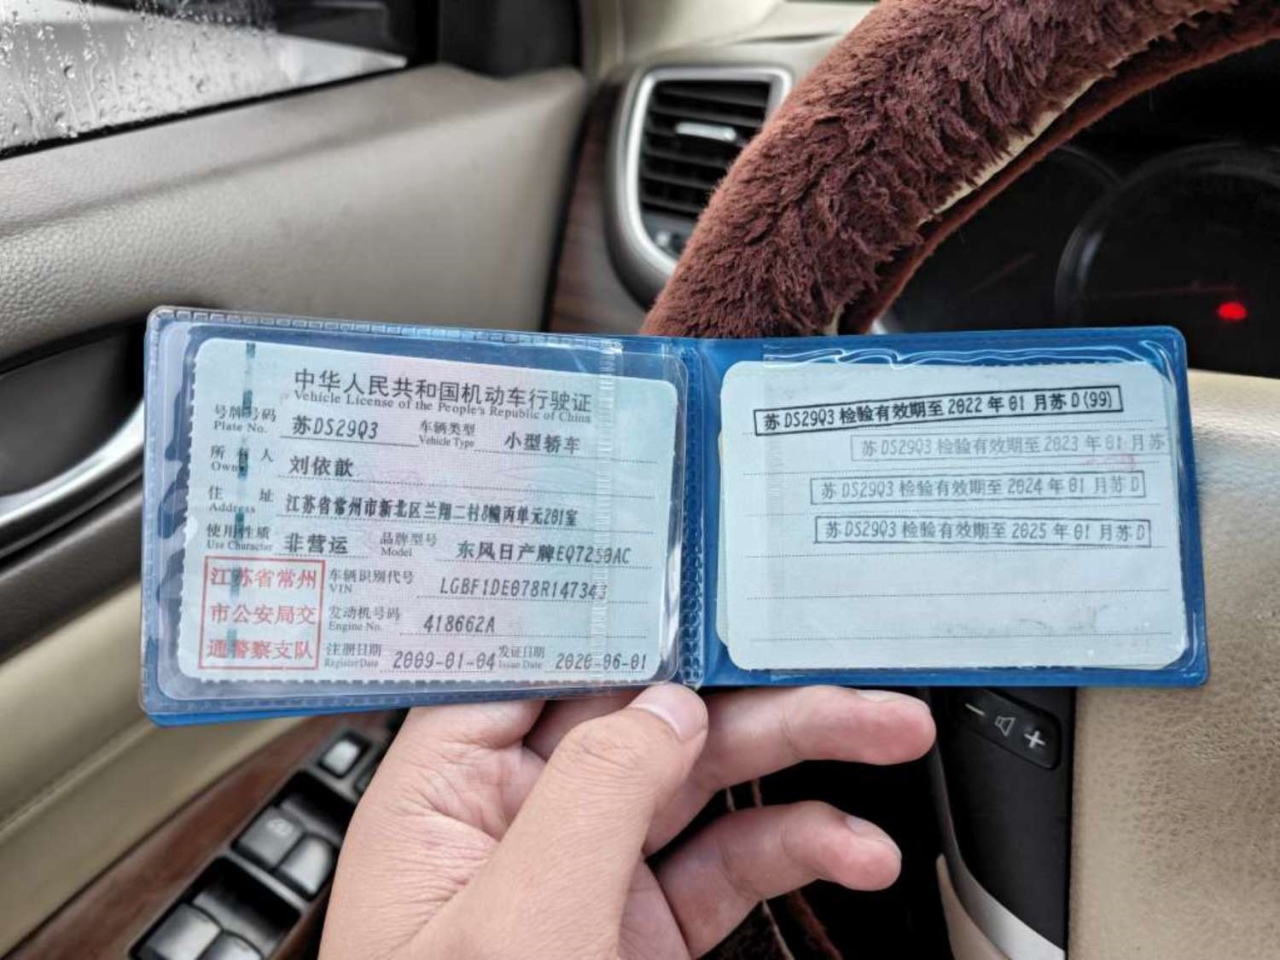 中华人民共和国机动车行驶证
Vehicle License of the People's Republic of China
号牌号码 苏DS29Q3 车辆类型 小型轿车
Plate No. Vehicle Type
所有人 刘依歆
Owner
住址 江苏省常州市新北区兰翔二村8幢丙单元201室
Address
使用性质 非营运 品牌型号 东风日产牌EQ7250AC
Use Character Model
车辆识别代号 LGBF1DE078R147343
VIN
发动机号码 418662A
Engine No.
注册日期 2009-01-04 发证日期 2020-06-01
Register Date Issue Date
江苏省常州
市公安局交
通警察支队
苏DS29Q3 检验有效期至 2022 年 01 月苏 D(99)
苏 DS29Q3 检验有效期至 2023 年 01 月苏
苏 DS29Q3 检验有效期至 2024 年 01 月苏 D
苏 DS29Q3 检验有效期至 2025 年 01 月苏 D
− +